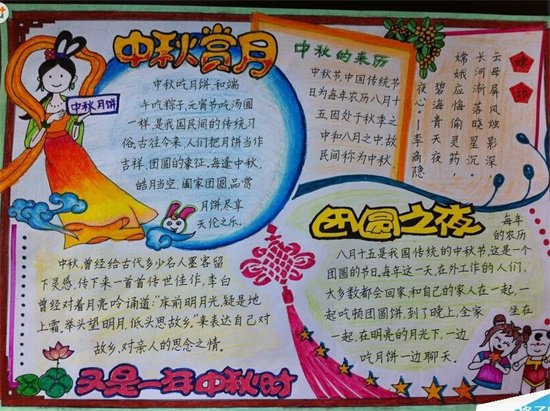 中秋赏月
中秋月饼
中秋吃月饼,和端
午吃粽子,元宵节吃汤圆
一样,是我国民间的传统习
俗。古往今来,人们把月饼当作
吉祥、团圆的象征。每逢中秋,
皓月当空,阖家团圆,品赏
月饼,尽享
天伦之乐。
中秋的来历
中秋节中国传统节
日为每年农历八月十
五因处于秋季之
中和八月之中故
民间称为中秋
嫦娥
云母屏风烛影深
长河渐落晓星沉。
嫦娥应悔偷灵药,
碧海青天夜
夜心。—李商隐
团圆之夜
每年
的农历
八月十五是我国传统的中秋节,这是一个
团圆的节日。每年这一天,在外工作的人们,
大多数都会回家,和自己的家人在一起,一
起吃顿团圆饼,到了晚上,全家坐在
一起,在明亮的月光下,一边
吃月饼一边聊天。
中秋,曾经给古代多少名人墨客留
下灵感,传下来一首首传世佳作,李白
曾经对着月亮吟诵道:“床前明月光,疑是地
上霜,举头望明月,低头思故乡。”来表达自己对
故乡、对亲人的思念之情。
又是一年中秋时